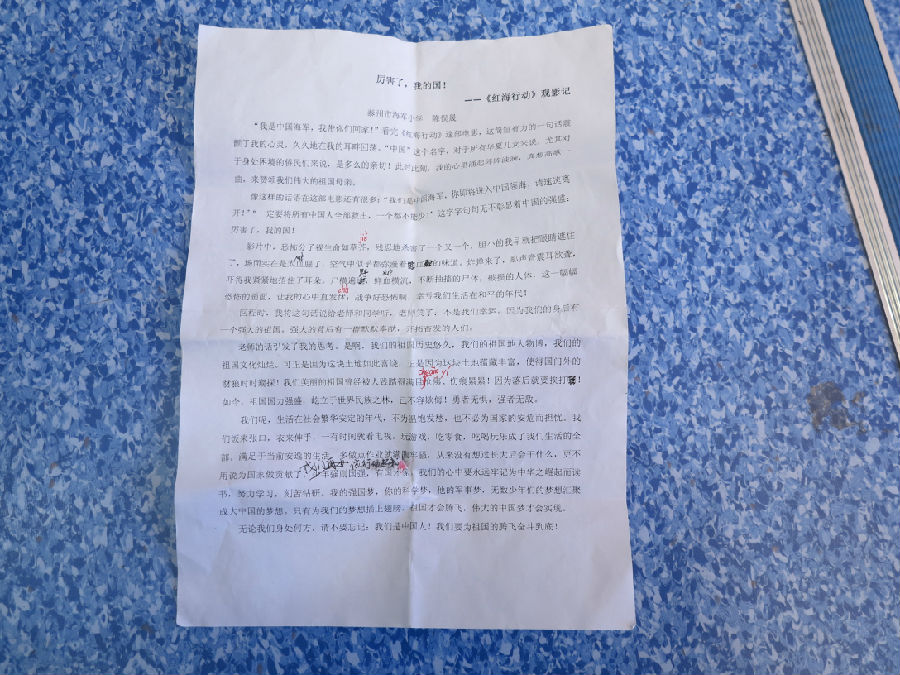 厉害了，我的国！
——《红海行动》观影记
泰州市海军小学 陈俊晟
“我是中国海军，我带你们回家！”看完《红海行动》这部电影，这简短有力的一句话震
撼了我的心灵，久久地在我的耳畔回荡。“中国”这个名字，对于所有华夏儿女来说，尤其对
于身处困境的侨民们来说，是多么的亲切！此时此刻，我的心里涌起阵阵波澜，真想高歌一
曲，来赞颂我们伟大的祖国母亲。
像这样的话语在这部电影还有很多：“我们是中国海军，你即将进入中国领海，请速速离
开！”“一定要将所有中国人全部救出，一个都不能少！”这字字句句无不彰显着中国的强盛：
厉害了，我的国！
影片中，恐怖分子视生命如草芥，残忍地杀害了一个又一个，胆小的我
场面实在是太血腥了，空气中似乎都弥漫着 的味道。炸弹来了，
我紧紧地捂住了耳朵。尸横遍野，鲜血横流，不断抽搐的尸体，被绑的人体，这一幅幅
恐怖的画面，让我的心中直发怵，战争好恐怖啊，幸亏我们生活在和平的年代！
回程时，我将这句话说给老师和同学听，老师笑了，不是我们幸运，因为我们的身后有
一个强大的祖国，强大的背后有一群默默奉献、开拓奋发的人们。
老师的话引发了我的思考。是啊，我们的祖国历史悠久，我们的祖国地大物博，我们的
祖国文化灿烂。可正是因为这块土地如此富饶，正是因为这块土地蕴藏丰富，使得国门外的
豺狼时时窥探！我们美丽的祖国曾经被人践踏得满目疮痍，伤痕累累！因为落后就要挨打
如今，祖国国力强盛，屹立于世界民族之林，已不容欺侮！勇者无惧，强者无敌。
我们呢，生活在社会繁华安定的年代，不为温饱发愁，也不必为国家的安危而担忧。我
们饭来张口，衣来伸手，一有时间就看电视，玩游戏，吃零食，吃喝玩乐成了我们生活的全
部，满足于当前安逸的生活，多做点作业就满腹牢骚，从来没有想过长大后会干什么，更不
用说为国家做贡献了。少年强则国强，我们的心中要永远牢记为中华之崛起而读
书，努力学习，刻苦钻研。我的强国梦，你的科学梦，他的军事梦，无数少年们的梦想汇聚
成大中国的梦想，只有为我们的梦想插上翅膀，祖国才会腾飞，伟大的中国梦才会实现。
无论我们身处何方，请不要忘记：我们是中国人！我们要为祖国的腾飞奋斗到底！